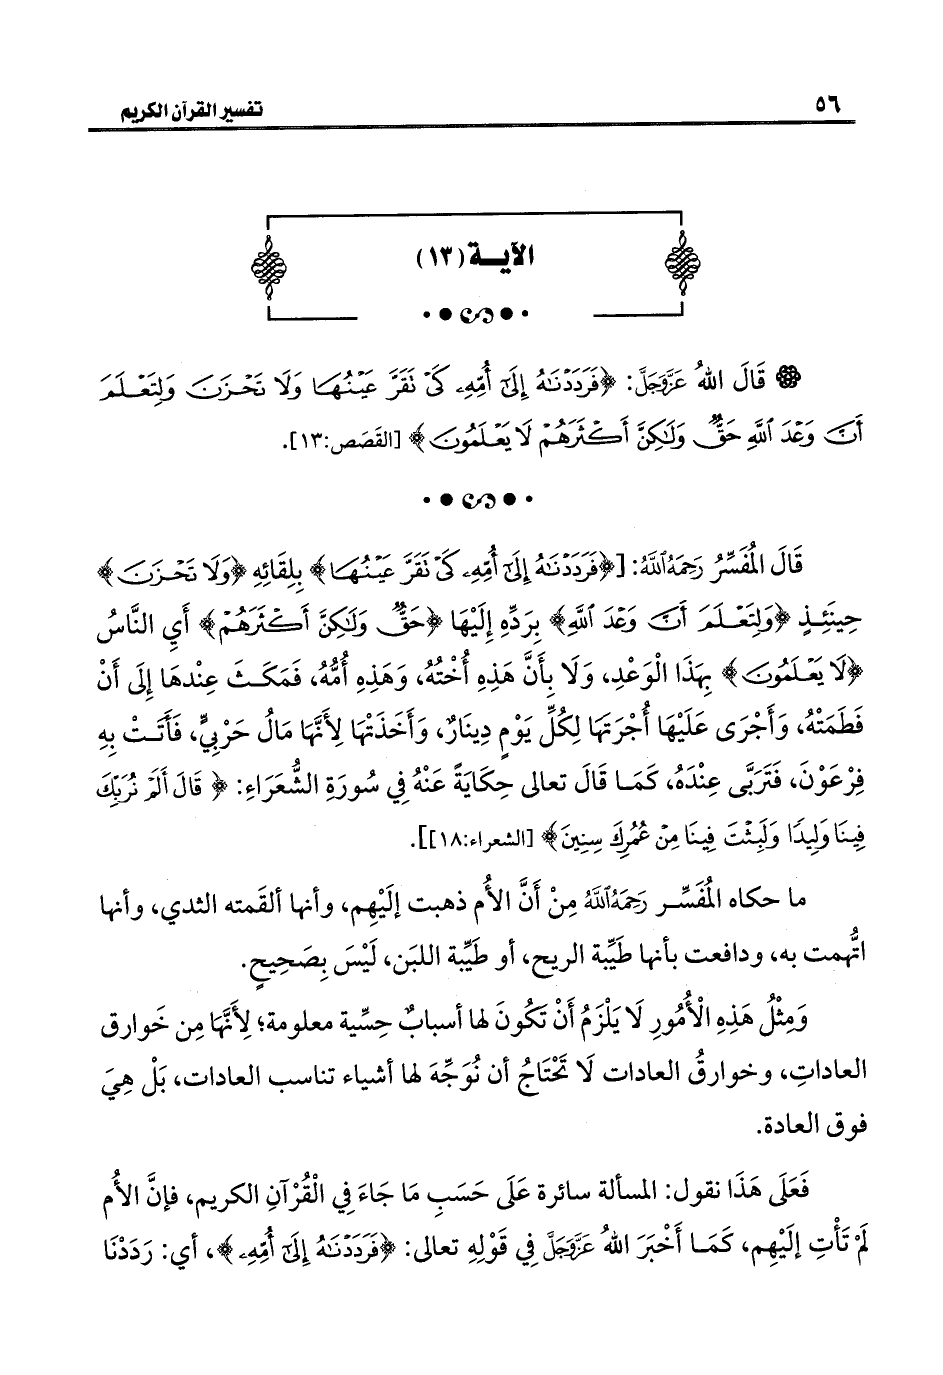 ٥٦
تفسير القرآن الكريم
الآيــة (١٣)
قَالَ اللهُ عَزَّوَجَلَّ: ﴿فَرَدَدْنَٰهُ إِلَىٰٓ أُمِّهِۦ كَىْ تَقَرَّ عَيْنُهَا وَلَا تَحْزَنَ وَلِتَعْلَمَ
أَنَّ وَعْدَ ٱللَّهِ حَقٌّ وَلَٰكِنَّ أَكْثَرَهُمْ لَا يَعْلَمُونَ﴾ [القَصَص:١٣].
قَالَ المُفَسِّرُ رَحِمَهُ اللَّهُ: [﴿فَرَدَدْنَٰهُ إِلَىٰٓ أُمِّهِۦ كَىْ تَقَرَّ عَيْنُهَا﴾ بِلِقَائِهِ ﴿وَلَا تَحْزَنَ﴾
حِينَئِذٍ ﴿وَلِتَعْلَمَ أَنَّ وَعْدَ ٱللَّهِ﴾ بِرَدِّهِ إِلَيْهَا ﴿حَقٌّ وَلَٰكِنَّ أَكْثَرَهُمْ﴾ أَيِ النَّاسُ
﴿لَا يَعْلَمُونَ﴾ بِهَذَا الْوَعْدِ، وَلَا بِأَنَّ هَذِهِ أُخْتُهُ، وَهَذِهِ أُمُّهُ، فَمَكَثَ عِنْدهَا إِلَى أَنْ
فَطَمَتْهُ، وَأَجْرَى عَلَيْهَا أُجْرَتهَا لِكُلِّ يَوْمٍ دِينَارٌ، وَأَخَذَتْهَا لِأَنَّهَا مَالُ حَرْبِيٍّ، فَأَتَتْ بِهِ
فِرْعَوْنَ، فَتَرَبَّى عِنْدَهُ، كَمَا قَالَ تعالى حِكَايَةً عَنْهُ فِي سُورَةِ الشُّعَرَاءِ: ﴿ قَالَ أَلَمْ نُرَبِّكَ
فِينَا وَلِيدًا وَلَبِثْتَ فِينَا مِنْ عُمُرِكَ سِنِينَ﴾ [الشعراء:١٨]].
ما حكاه المُفَسِّـر رَحِمَهُ اللَّهُ مِنْ أَنَّ الأُم ذهبت إلَيْهِم، وأنها ألقَمته الثدي، وأنها
اتُّهمت به، ودافعت بأنها طَيِّبة الريح، أو طَيِّبة اللبَن، لَيْسَ بِصَحِيحٍ.
وَمِثْلُ هَذِهِ الْأُمُورِ لَا يَلْزَمُ أَنْ تَكُونَ لها أسبابٌ حِسِّية معلومة؛ لِأَنَّهَا مِن خَوارق
العاداتِ، وخوارقُ العادات لَا تَحْتَاجُ أن نُوَجِّهَ لها أشياء تناسب العادات، بَلْ هِيَ
فوق العادة.
فَعَلَى هَذَا نقول: المسألة سائرة عَلَى حَسَبِ مَا جَاءَ فِي الْقُرْآنِ الكريم، فإنَّ الأُم
لَمْ تَأْتِ إلَيْهِم، كَمَا أَخْبَرَ اللهُ عَزَّوَجَلَّ فِي قَوْلِهِ تعالى: ﴿فَرَدَدْنَٰهُ إِلَىٰٓ أُمِّهِۦ﴾، أي: رَدَدْنَا